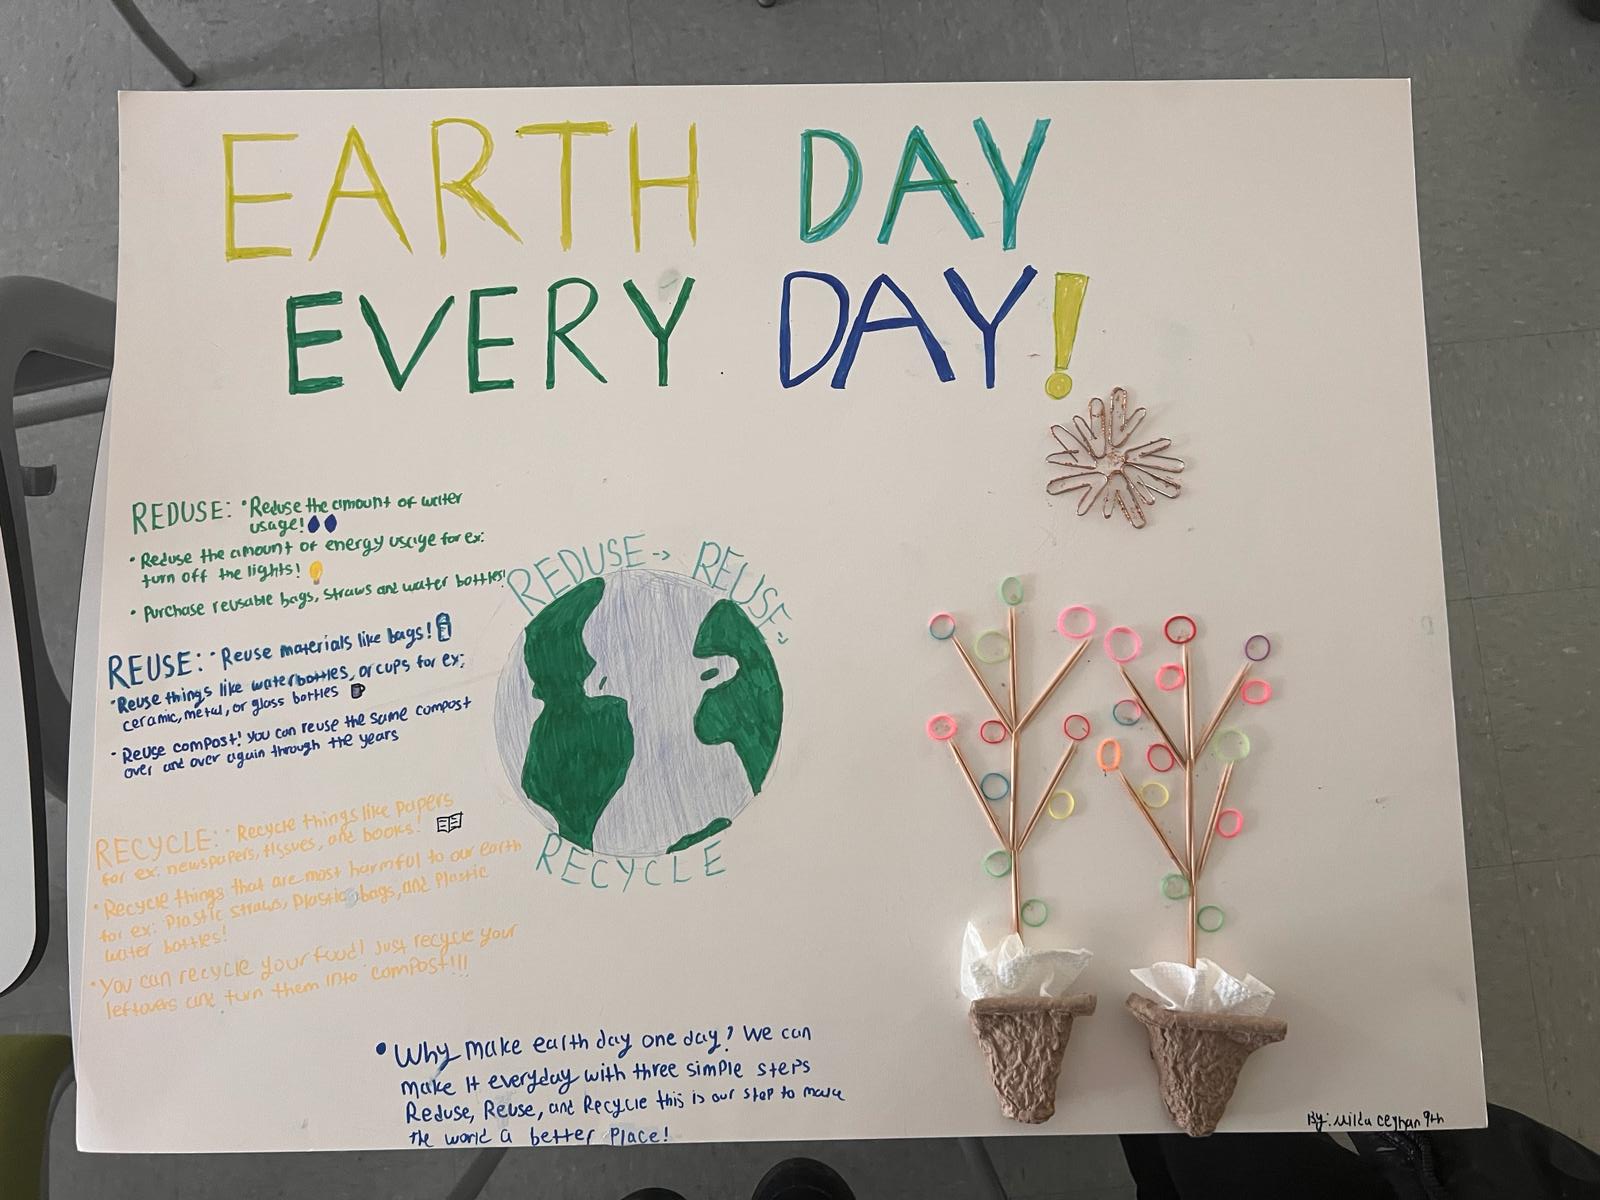 EARTH DAY
EVERY DAY!
REDUSE: • Reduse the amount of water
usage!
• Reduse the amount of energy usage for ex:
turn off the lights!
• Purchase reusable bags, straws and water bottles!
REUSE: • Reuse materials like bags!
• Reuse things like waterbottles, or cups for ex;
ceramic, metal, or glass bottles
• Reuse compost! you can reuse the same compost
over and over again through the years
RECYCLE: • Recycle things like papers
for ex: newspapers, tissues, and books!
• Recycle things that are most harmful to our earth
for ex: Plastic straws, plastic bags, and plastic
water bottles!
• You can recycle your food! Just recycle your
leftovers and turn them into compost!!!
REDUSE -> REUSE ->
RECYCLE
• Why make earth day one day? We can
make it everyday with three simple steps
Reduse, Reuse, and Recycle this is our step to make
the world a better place!
By: Mila Ceyhan 9th